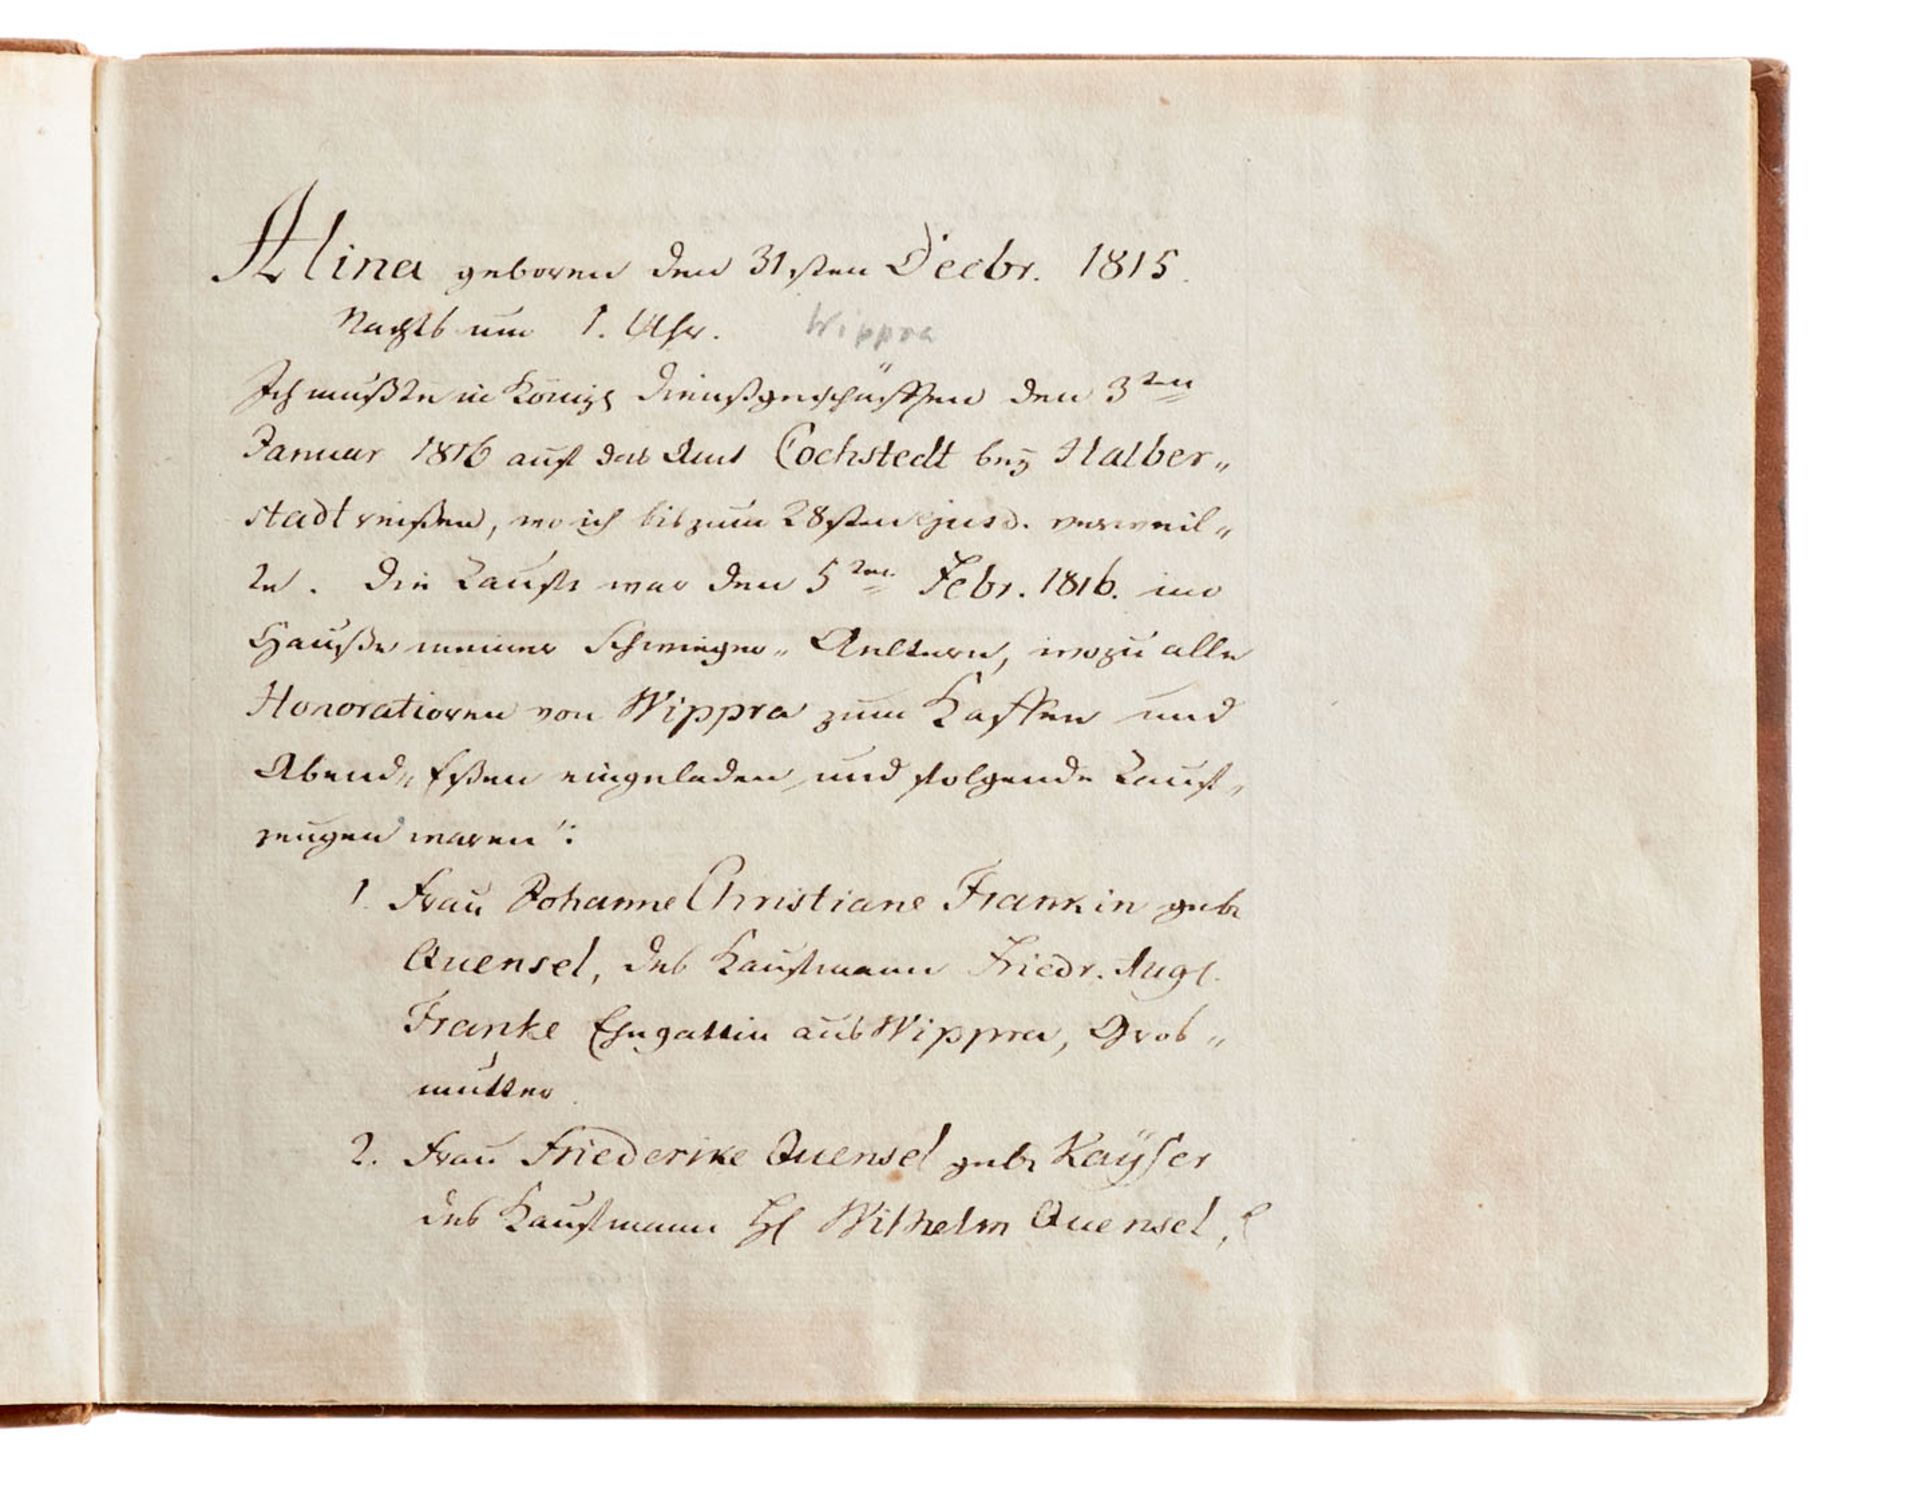 Alina geboren den 31sten Decbr. 1815.
Nachts um 1. Uhr. Wippra
Ich mußte in Königl Dienstgeschäfften den 3ten
Januar 1816 auf das Amt Cochstedt bey Halber„
stadt reißen, wo ich bis zum 28sten ejusd. verweil„
te. Die Taufe war den 5ten Febr. 1816. im
Hauße meiner Schwieger„ Aeltern, wozu alle
Honoratioren von Wippra zum Kaffee und
Abend„ Eßen eingeladen und folgende Tauf„
zeugen waren:
1. Frau Johanne Christiane Frankin geb.
Quensel, des Kaufmann Friedr. Augt.
Franke Ehegattin aus Wippra, Gros„
mutter.
2. Frau Friederike Quensel geb. Kaÿser
des Kaufmann H. Wilhelm Quensel,